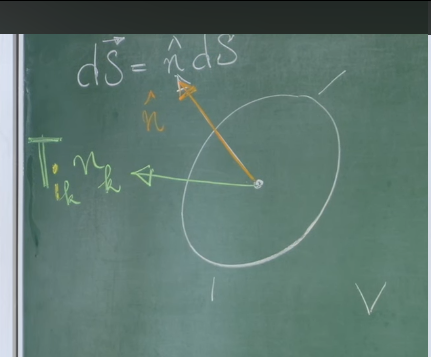 dS⃗ = n̂ dS
n̂
T_{ik} n_k
V